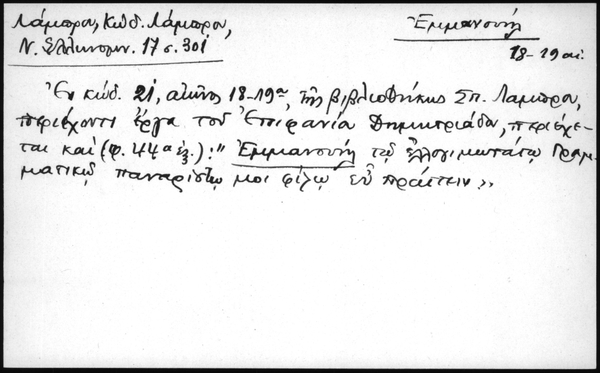 Λάμπρου, Κώδ. Λάμπρου,
Ν. Ἑλληνομν. 17 σ. 301
Ἐμμανουήλ
18-19 αἰ.
Ἐν κώδ. 21, αἰῶνος 18-19ου, τῆς βιβλιοθήκης Σπ. Λάμπρου,
περιέχοντι ἔργα τοῦ Ἐπιφανίου Δημητριάδου, περιέχε-
ται καὶ (φ. 44α ἑξ.): "Ἐμμανουὴλ τῷ ἐλλογιμωτάτῳ Γραμ-
ματικῷ παναρίστῳ μοι φίλῳ εὖ πράττειν"